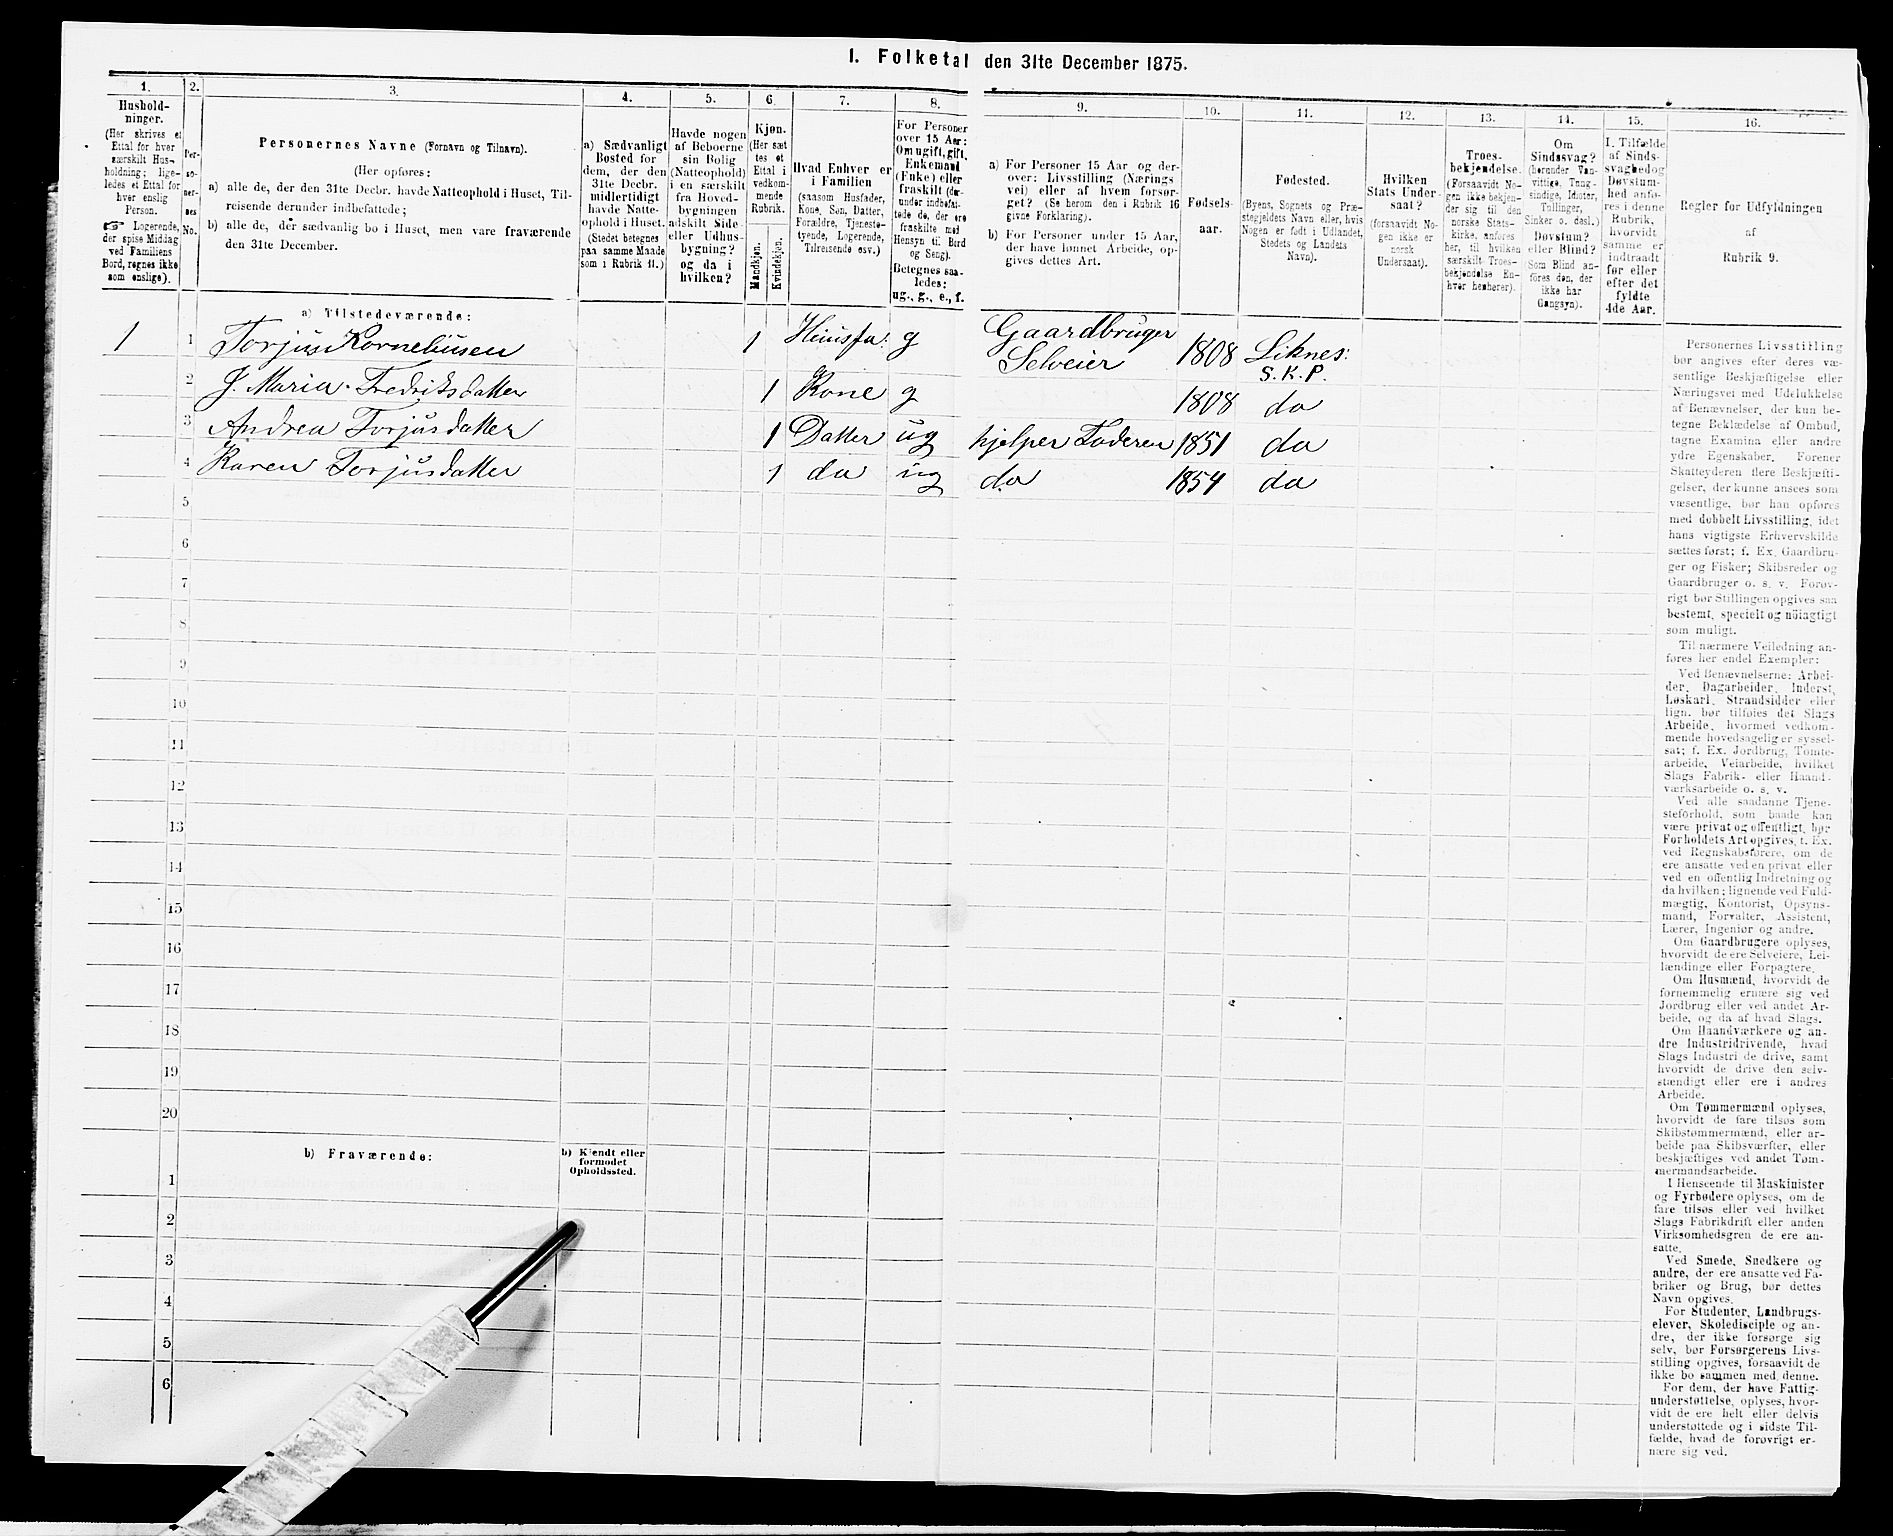 I. Folketal den 31te December 1875.
1.
Hushold-
ninger.
(Her skrives et
Ettal for hver
særskilt Hus-
holdning; lige-
ledes et Ettal for
hver enslig
Person.
☞ Logerende,
der spise Middag
ved Familiens
Bord, regnes ikke
som enslige).
2.
Per-
so-
ner-
nes
No.
3.
Personernes Navne (Fornavn og Tilnavn).
(Her opføres:
a) alle de, der den 31te Decbr. havde Natteophold i Huset, Til-
reisende derunder indbefattede;
b) alle de, der sædvanlig bo i Huset, men vare fraværende
den 31te December.
4.
a) Sædvanligt
Bosted for
dem, der den
31te Decbr.
midlertidigt
havde Natte-
ophold i Huset.
(Stedet betegnes
paa samme Maade
som i Rubrik 11.)
5.
Havde nogen
af Beboerne
sin Bolig
(Natteophold)
i en særskilt
fra Hoved-
bygningen
adskilt Side-
eller Udhus-
bygning?
og da i
hvilken?
6.
Kjøn.
(Her sæt
tes et
Ettal i
vedkom-
mende
Rubrik.
Mandkjøn.
Kvindekjøn.
7.
Hvad Enhver er
i Familien
(saasom Husfader,
Kone, Søn, Datter,
Forældre, Tjeneste-
tyende, Logerende,
Tilreisende osv.)
8.
For Personer
over 15 Aar:
Om ugift, gift,
Enkemand
(Enke) eller
fraskilt (der-
under indbefat-
tede de, der ere
fraskilte med
Hensyn til Bord
og Seng).
Betegnes saa-
ledes:
ug., g., e., f.
9.
a) For Personer 15 Aar og der-
over: Livsstilling (Nærings
vei) eller af hvem forsør-
get? (Se herom den i Rubrik 16
givne Forklaring).
b) For Personer under 15 Aar,
der have lønnet Arbeide, op-
gives dettes Art.
10.
Fødsels-
aar.
11.
Fødested.
(Byens, Sognets og Præ-
stegjeldets Navn eller, hvis
Nogen er født i Udlandet,
Stedets og Landets
Navn).
12.
Hvilken
Stats Under-
saat?
(forsaavidt No-
gen ikke er
norsk
Undersaat).
13.
Troes-
bekjendelse.
(Forsaavidt No-
gen ikke bekjen-
der sig til den
norske Stats-
kirke, anføres
her, til hvilken
særskilt Troes-
bekjendelse En-
hver henhører).
14.
Om
Sindssvag?
(herunder Van-
vittige, Tung-
sindige, Idioter,
Tullinger,
Sinker o. desl.)
Døvstum?
eller Blind?
(Som Blind an-
føres den, der
ikke har
Gangsyn).
15.
I. Tilfælde
af Sinds-
svaghed og
Døvstum-
hed anfø-
res i denne
Rubrik,
hvorvidt
samme er
indtraadt
før eller
efter det
fyldte
4de Aar.
16.
Regler for Udfyldningen
af
Rubrik 9.
a) Tilstedeværende:
1 1 Torjus Kornelius­en 1 Huusfa: g Gaardbruger Selveier 1808 Liknes: S. K. P.
2 J. Maria Fredriksdatter 1 Kone g 1808 do
3 Andrea Torjusdatter 1 Datter ug hjelper Faderen 1851 do
4 Karen Torjusdatter 1 do ug do 1854 do
5
6
7
8
9
10
11
12
13
14
15
16
17
18
19
20
b) Fraværende:
b) Kjendt eller
formodet
Opholdssted.
1
2
3
4
5
6
Personernes Livsstilling
bør angives efter deres væ-
sentlige Beskjæftigelse eller
Næringsvei med Udelukkelse
af Benævnelser, der kun be-
tegne Beklædelse af Ombud,
tagne Examina eller andre
ydre Egenskaber. Forener
Skatteyderen flere Beskjæfti-
gelser, der kunne ansees som
væsentlige, bør han opføres
med dobbelt Livsstilling, idet
hans vigtigste Erhvervskilde
sættes først; f. Ex. Gaardbru-
ger og Fisker; Skibsreder og
Gaardbruger o. s. v. Forøv-
rigt bør Stillingen opgives saa
bestemt, specielt og nøiagtigt
som muligt.
Til nærmere Veiledning an-
føres her endel Exempler:
Ved Benævnelserne: Arbei-
der, Dagarbeider, Inderst,
Løskarl, Strandsidder eller
lign. bør tilføies det Slags
Arbeide, hvormed vedkom-
mende hovedsagelig er syssel-
sat; f. Ex. Jordbrug, Tomte-
arbeide, Veiarbeide, hvilket
Slags Fabrik- eller Haand-
værksarbeide o. s. v.
Ved alle saadanne Tjene-
steforhold, som baade kan
være privat og offentligt, bør
Forholdets Art opgives, f. Ex.
ved Regnskabsførere, om de
ere ansatte ved en privat eller
ved en offentlig Indretning og
da hvilken; lignende ved Fuld-
mægtig, Kontorist, Opsyns-
mand, Forvalter, Assistent,
Lærer, Ingeniør og andre.
Om Gaardbrugere oplyses,
hvorvidt de ere Selveiere, Lei-
lændinge eller Forpagtere.
Om Husmænd, hvorvidt de
fornemmelig ernære sig ved
Jordbrug eller ved andet Ar-
beide, og da af hvad Slags.
Om Haandværkere og an-
dre Industridrivende, hvad
Slags Industri de drive, samt
hvorvidt de drive den selv-
stændigt eller ere i andres
Arbeide.
Om Tømmermænd oplyses,
hvorvidt de fare tilsøs som
Skibstømmermænd, eller ar-
beide paa Skibsværfter, eller
beskjæftiges ved andet Tøm-
mermandsarbeide.
I Henseende til Maskinister
og Fyrbødere oplyses, om de
fare tilsøs eller ved hvilket
Slags Fabrikdrift eller anden
Virksomhedsgren de ere an-
satte.
Ved Smede, Snedkere og
andre, der ere ansatte ved Fa-
briker og Brug, bør dettes
Navn opgives.
For Studenter, Landbrugs-
elever, Skoledisciple og an-
dre, der ikke forsørge sig
selv, bør Forsørgerens Livs-
stilling opgives, forsaavidt de
ikke bo sammen med denne.
For dem, der have Fattig-
understøttelse, oplyses, hvor-
vidt de ere helt eller delvis
understøttede og i sidste Til-
fælde, hvad de forøvrigt er-
nære sig ved.